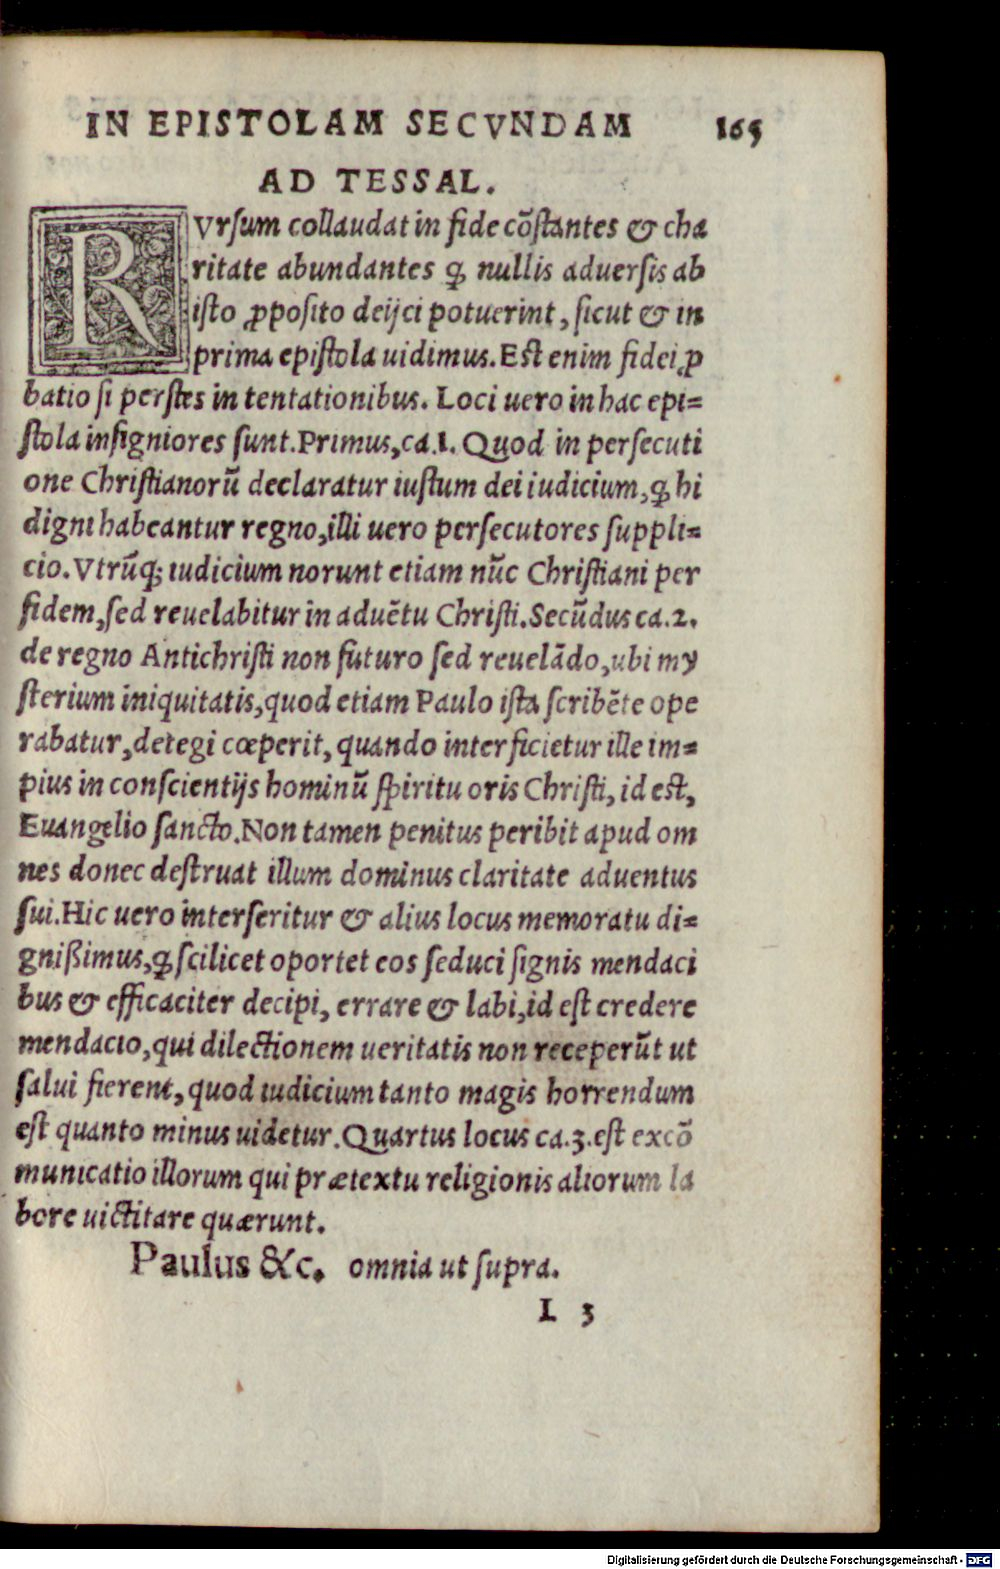 IN EPISTOLAM SECVNDAM 165
AD TESSAL.
RVrsum collaudat in fide cõstantes & cha
ritate abundantes ꝙ nullis aduersis ab
isto ꝓposito deijci potuerint, sicut & in
prima epistola uidimus. Est enim fidei ꝓ
batio si perstes in tentationibus. Loci uero in hac epi=
stola insigniores sunt. Primus, ca. 1. Quod in persecuti
one Christianorũ declaratur iustum dei iudicium, ꝙ hi
digni habeantur regno, illi uero persecutores suppli=
cio. Vtrũq; iudicium norunt etiam nũc Christiani per
fidem, sed reuelabitur in aduẽtu Christi. Secũdus ca. 2.
de regno Antichristi non futuro sed reuelãdo, ubi my
sterium iniquitatis, quod etiam Paulo ista scribẽte ope
rabatur, detegi cœperit, quando interficietur ille im=
pius in conscientijs hominũ spiritu oris Christi, id est,
Euangelio sancto. Non tamen penitus peribit apud om
nes donec destruat illum dominus claritate aduentus
sui. Hic uero interseritur & alius locus memoratu di=
gnißimus, ꝙ scilicet oportet eos seduci signis mendaci
bus & efficaciter decipi, errare & labi, id est credere
mendacio, qui dilectionem ueritatis non receperũt ut
salui fierent, quod iudicium tanto magis horrendum
est quanto minus uidetur. Quartus locus ca. 3. est excõ
municatio illorum qui prætextu religionis aliorum la
bore uictitare quærunt.
Paulus &c. omnia ut supra.
L 3
Digitalisierung gefördert durch die Deutsche Forschungsgemeinschaft - DFG